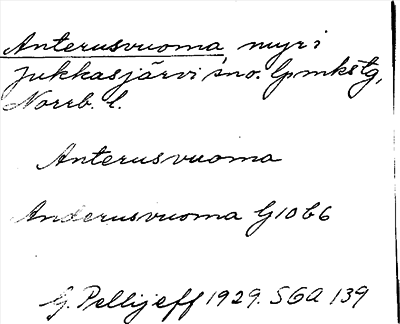 Anterusvuoma myr i
Jukkasjärvi sno. lpmkstg,
Norrb. l.
Anterusvuoma
Anderusvuoma G10b6
G. Pellijeff 1929. SGA 139